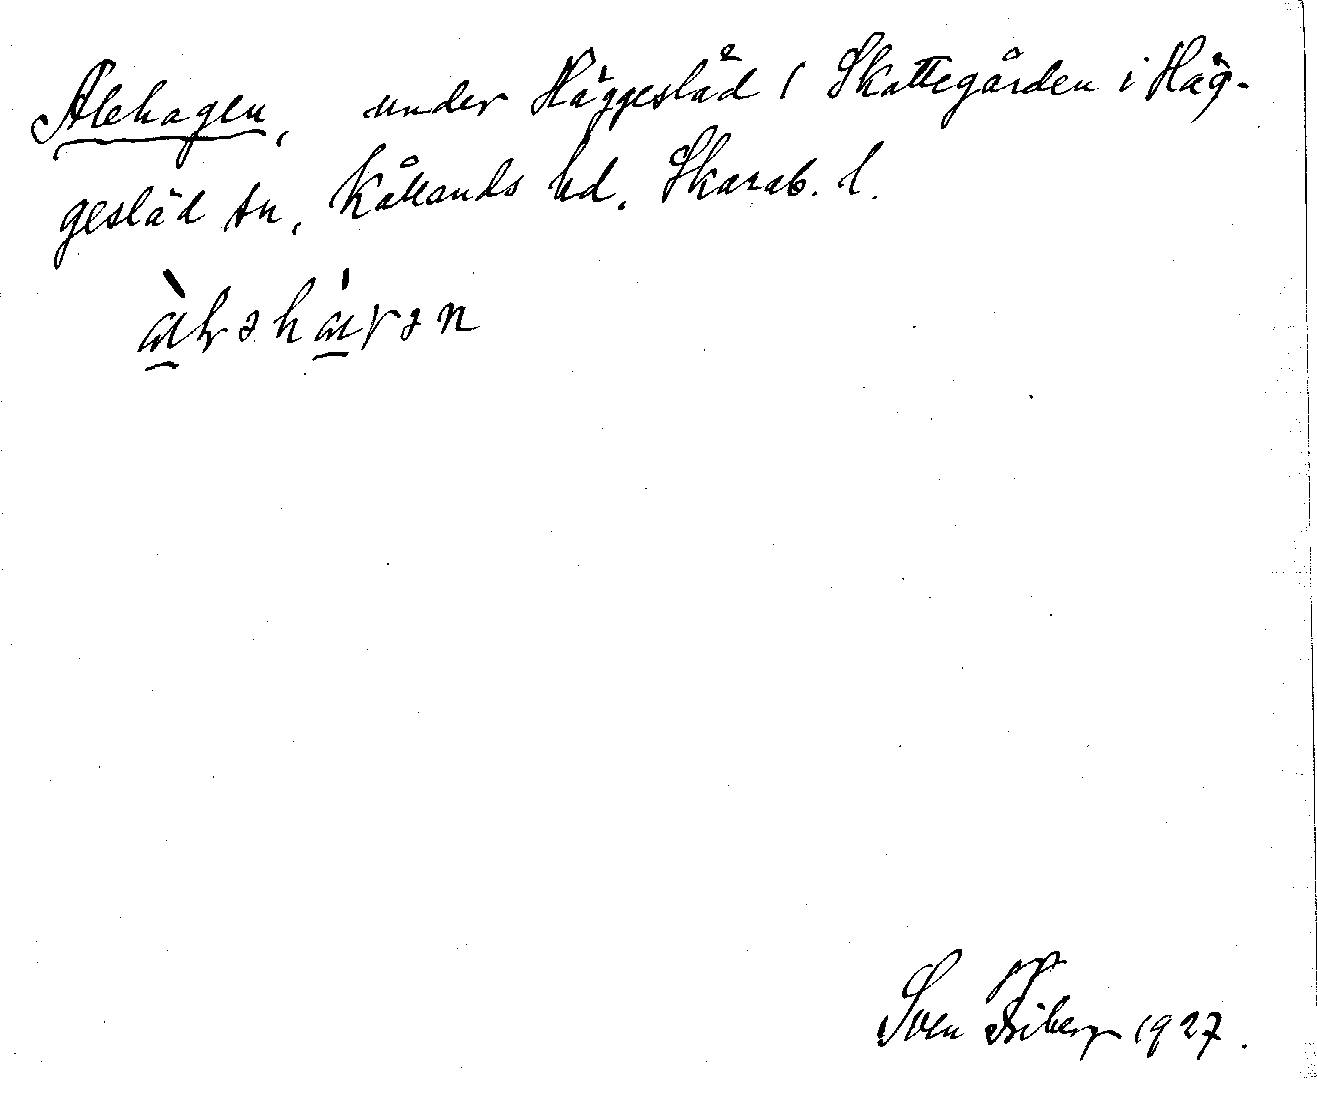 Alehagen, under Häggesläd (Skattegården i Häg-
gesläd sn, Kållands hd. Skarab. l.
Sven Friberg 1927.